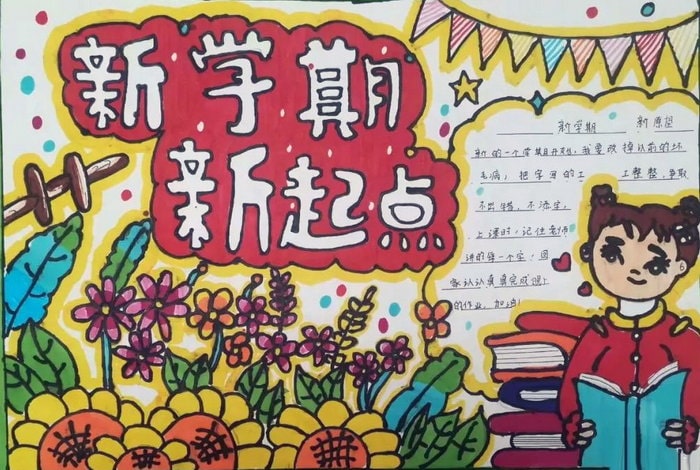 新学期
新起点
新学期 新愿望
新的一个学期开始,我要改掉以前的坏
毛病,把字写的工工整整,争取
不写错,不漂 
上课时,记住老师
讲的每一个字,回
家认认真真完成课上
的作业,加油!